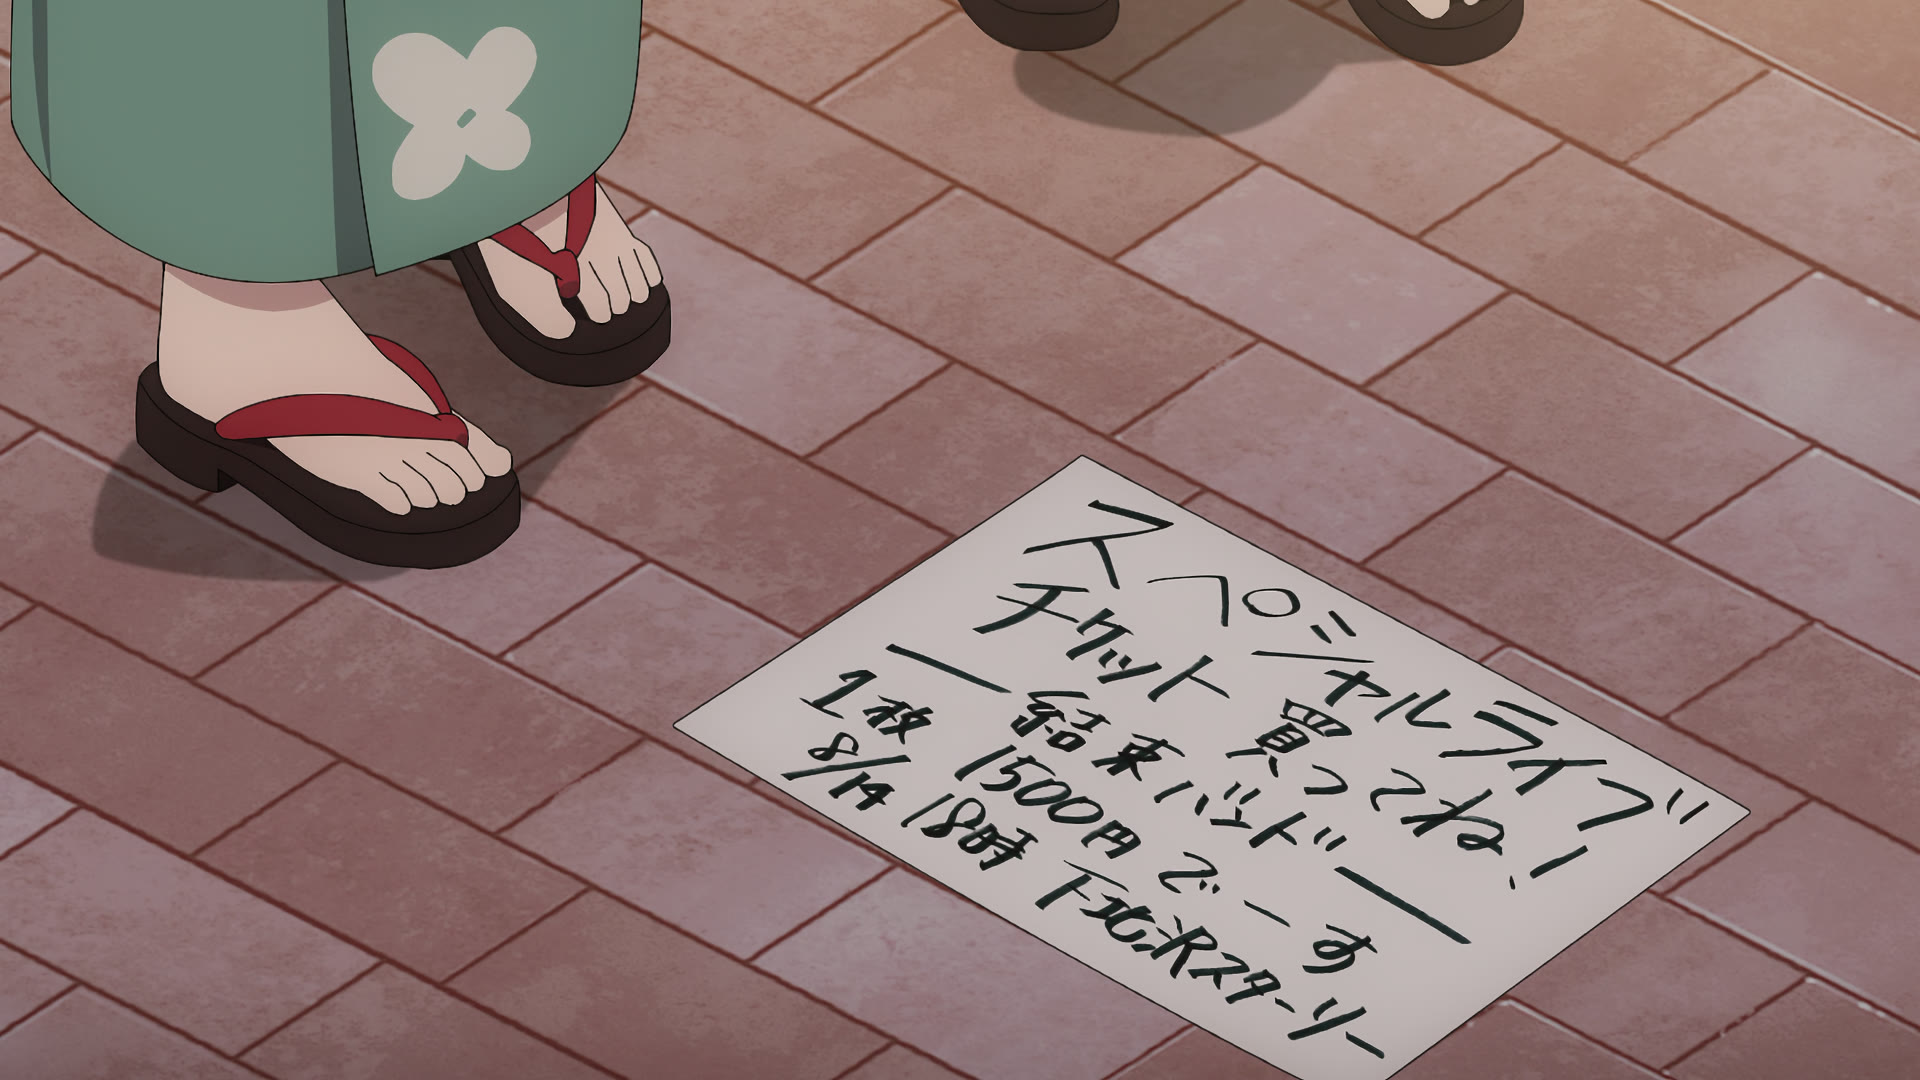 スペシャルライブ
チケット 買ってね!
— 結束バンド —
1枚 1500円 でーす
8/14 18時 下北沢スターリー